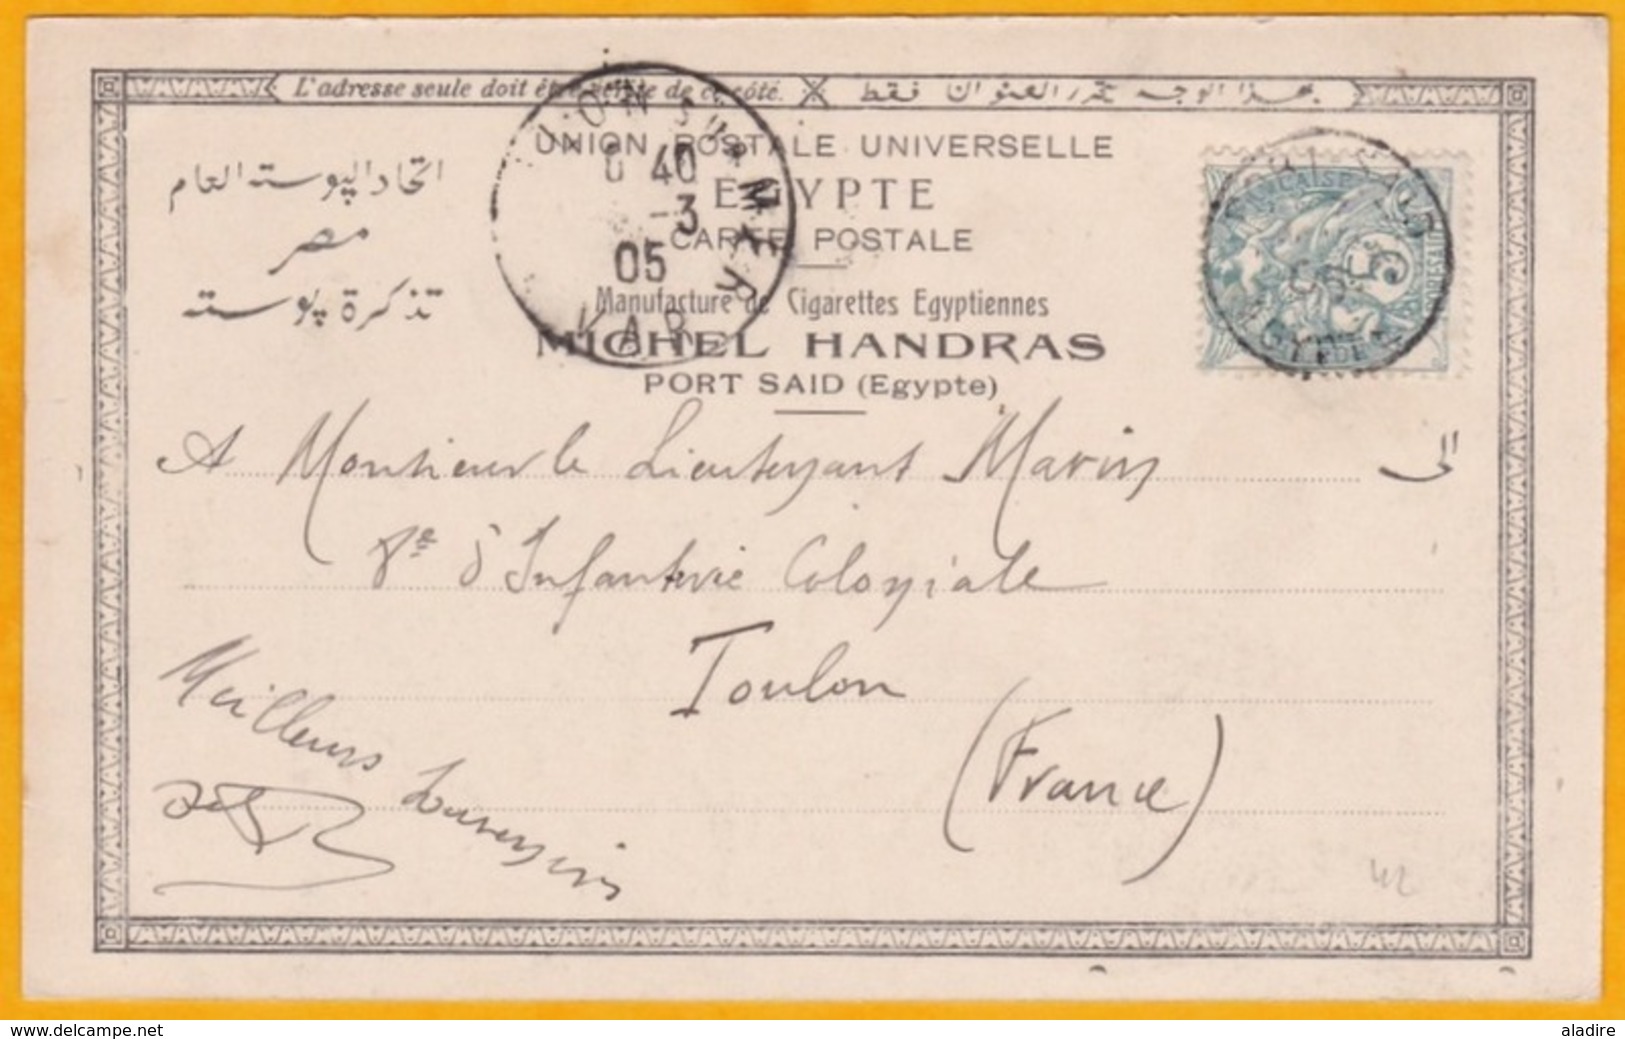 L'adresse seule doit être écrite de ce côté.
بهذا الوجه تحرر العنوان فقط
UNION POSTALE UNIVERSELLE
EGYPTE
CARTE POSTALE
اتحاد البوسته العام
مصر
تذكرة بوسته
Manufacture de Cigarettes Egyptiennes
MICHEL HANDRAS
PORT SAID (Egypte)
40
-3
05
VAR
PORT SAID
5
A Monsieur le Lieutenant Marin
الى
8e d'Infanterie Coloniale
Toulon
(France)
Meilleurs souvenirs
www.delcampe.net
aladire